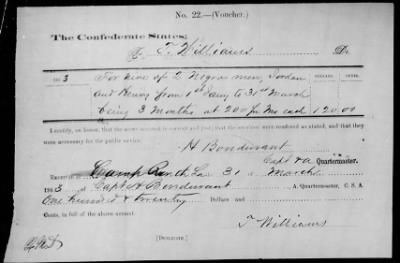 No. 22.—(Voucher.)
The Confederate States,
To T. Williams Dr.
DOLLARS. CENTS.
1863 For hire of 2 Negro men, Jordan
and Henry from 1st Jany to 31st March
being 3 months at 20 00 pr Mo each 120.00
I certify, on honor, that the above account is correct and just; that the services were rendered as stated, and that they
were necessary for the public service.
H Bondurant
Capt & A Quartermaster.
Received at Camp La 31 March
1863 of Capt H Bondurant A. Quartermaster, C. S. A.
One hundred & twenty Dollars and
Cents, in full of the above account.
T Williams
[DUPLICATE.]